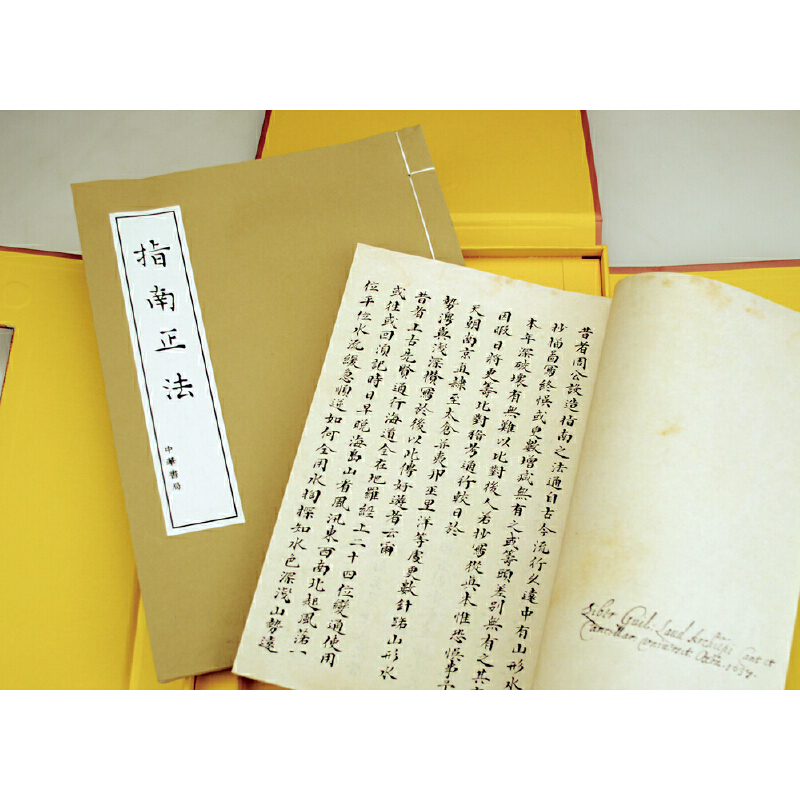 指南正法
中華書局
昔者周公設造指南之法通自古今流行久遠中有山形水
抄描啚寫終悞或更數增減無有之或等頭差別無有之其
本年深破壞有無難以比對後人若抄寫從真本惟恐悞事
因暇日將更等比對稽考通行較日於
天朝南京直隸至太倉并夷邦巫里洋等處更數針路山形水
勢澳與淺深攢寫於後以此傳好遊者云爾
昔者上古先賢通行海道全在地羅經上二十四位變通使用
或往或回須記時日早晚海島山看風汛東西南北起風落一
位平位水流緩急順逆如何全用水掏探知水色深淺山勢遠
Liber Guil: Laud Archiepi Cant et
Cancellar. Universit Oxon. 1637.